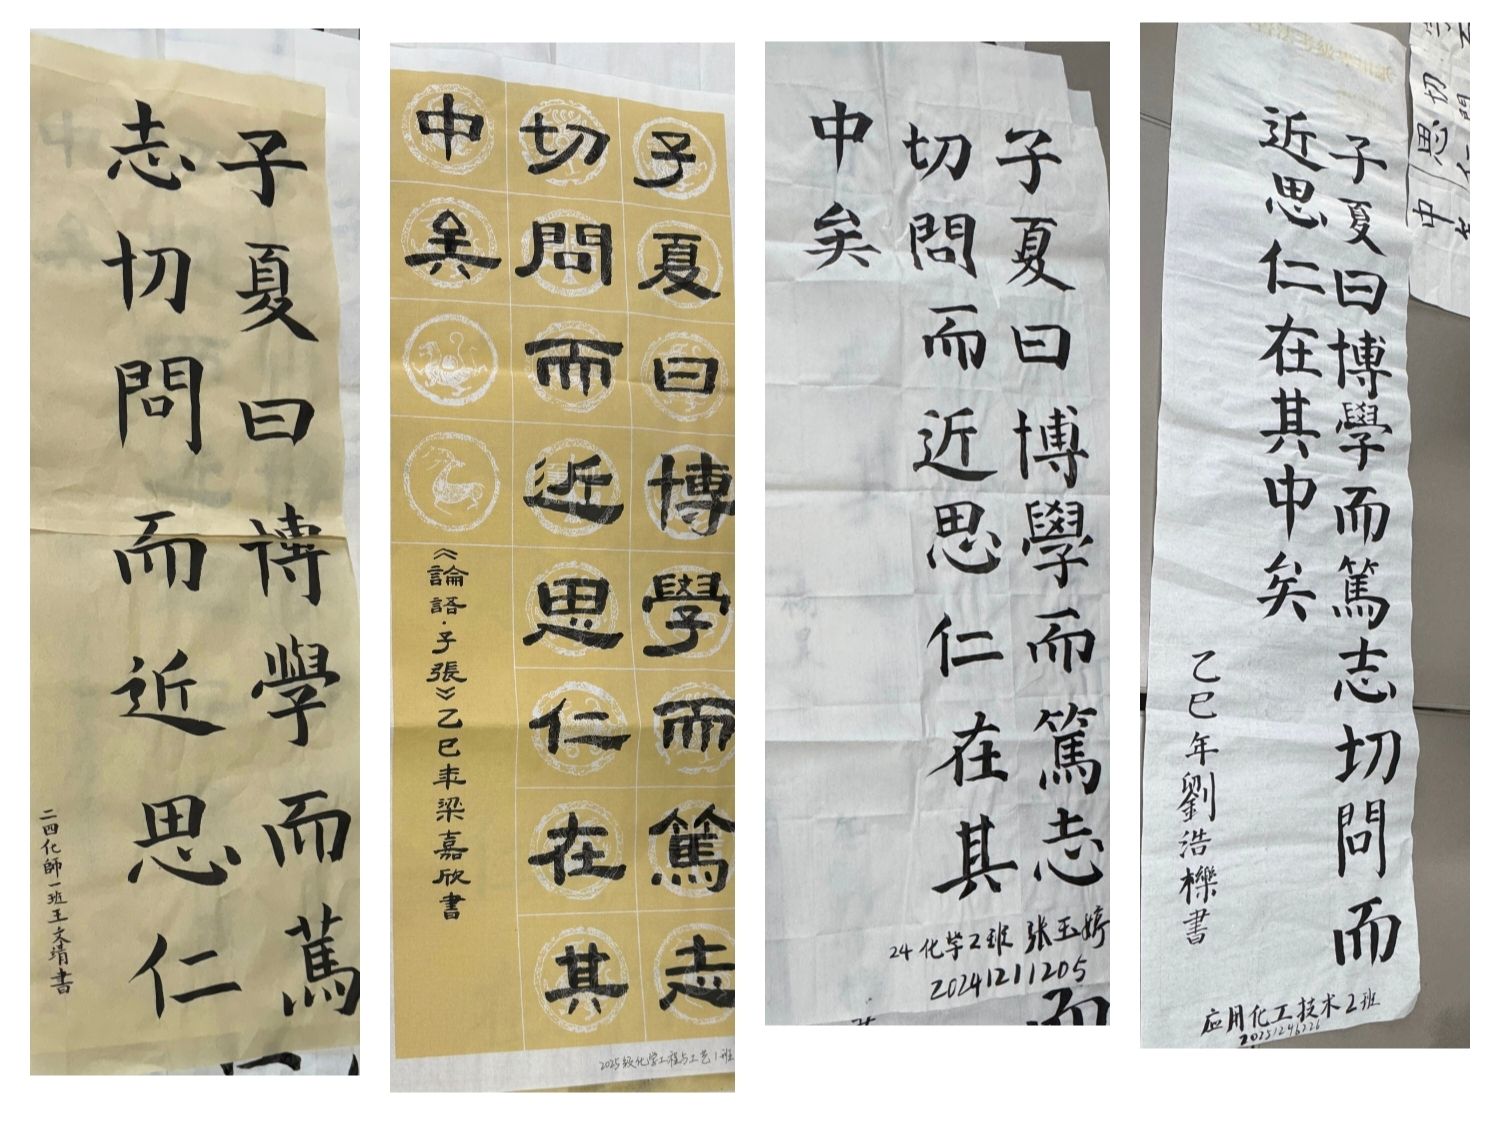 子夏曰博學而篤
志切問而近思仁
二四化師一班王文靖書
子夏曰博學而篤志
切問而近思仁在其
中矣
《論語·子張》乙巳年梁嘉欣書
2025级化学工程与工艺1班
子夏曰博學而篤志
切問而近思仁在其
中矣
24化学2班 张玉婷
20241211205
而
子夏曰博學而篤志切問而
近思仁在其中矣
乙巳年劉浩櫟書
应用化工技术2班
20251246226
切問
中思